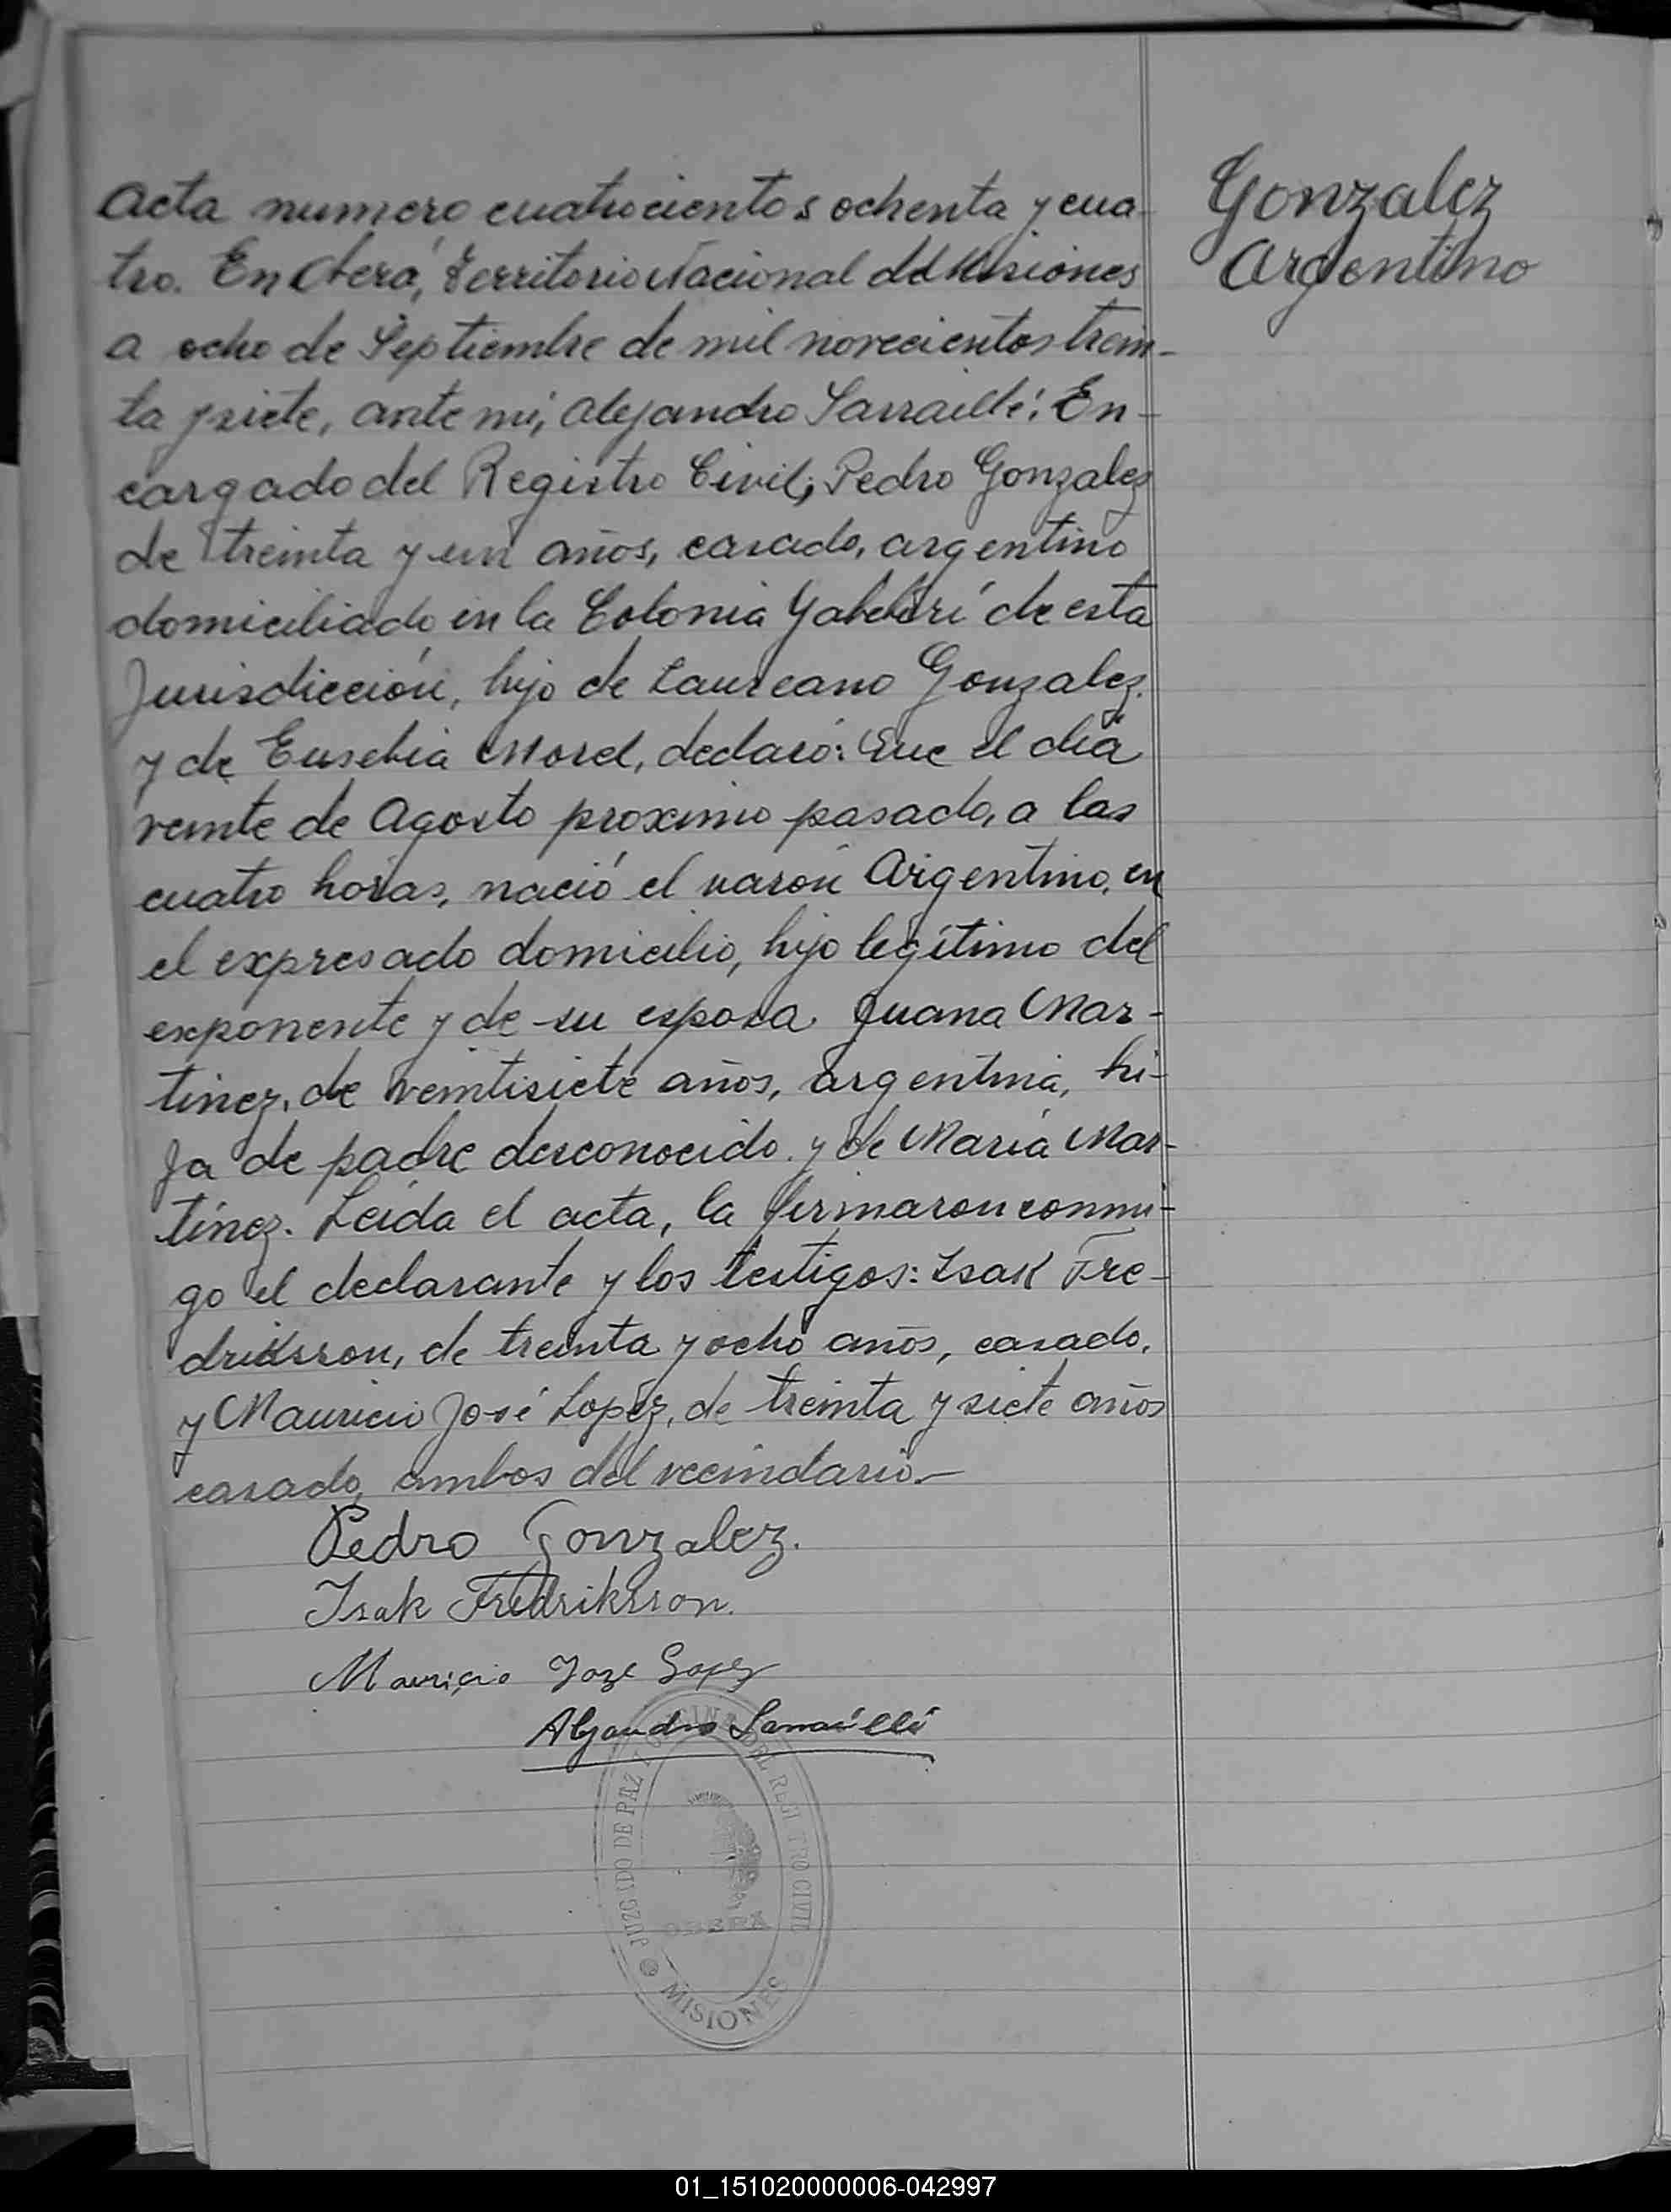 Acta numero cuatrocientos ochenta y cua-
tro. En Oberá, Territorio Nacional de Misiones
a ocho de Septiembre de mil novecientos trein-
ta y siete, ante mí, Alejandro Sarraillé: En-
cargado del Registro Civil, Pedro Gonzalez
de treinta y un años, casado, argentino
domiciliado en la Colonia Yabebirí de esta
Jurisdicción, hijo de Laureano Gonzalez
y de Eusebia Morel, declaró: Que el día
veinte de Agosto proximo pasado, a las
cuatro horas, nació el varón Argentino, en
el expresado domicilio, hijo legítimo del
exponente y de su esposa Juana Mar-
tinez, de veintisiete años, argentina, hi-
ja de padre desconocido y de María Mar-
tínez. Leída el acta, la firmaron conmi-
go el declarante y los testigos: Isak Fre-
driksson, de treinta y ocho años, casado,
y Mauricio José Lopéz, de treinta y siete años
casado, ambos del vecindario.-
Pedro Gonzalez.
Isak Fredriksson.
Mauricio Joze Lopez
Alejandro Sarraillé
JUZGADO DE PAZ Y OFICINA DEL REGISTRO CIVIL
OBERA
MISIONES
Gonzalez
Argentino
01_151020000006-042997